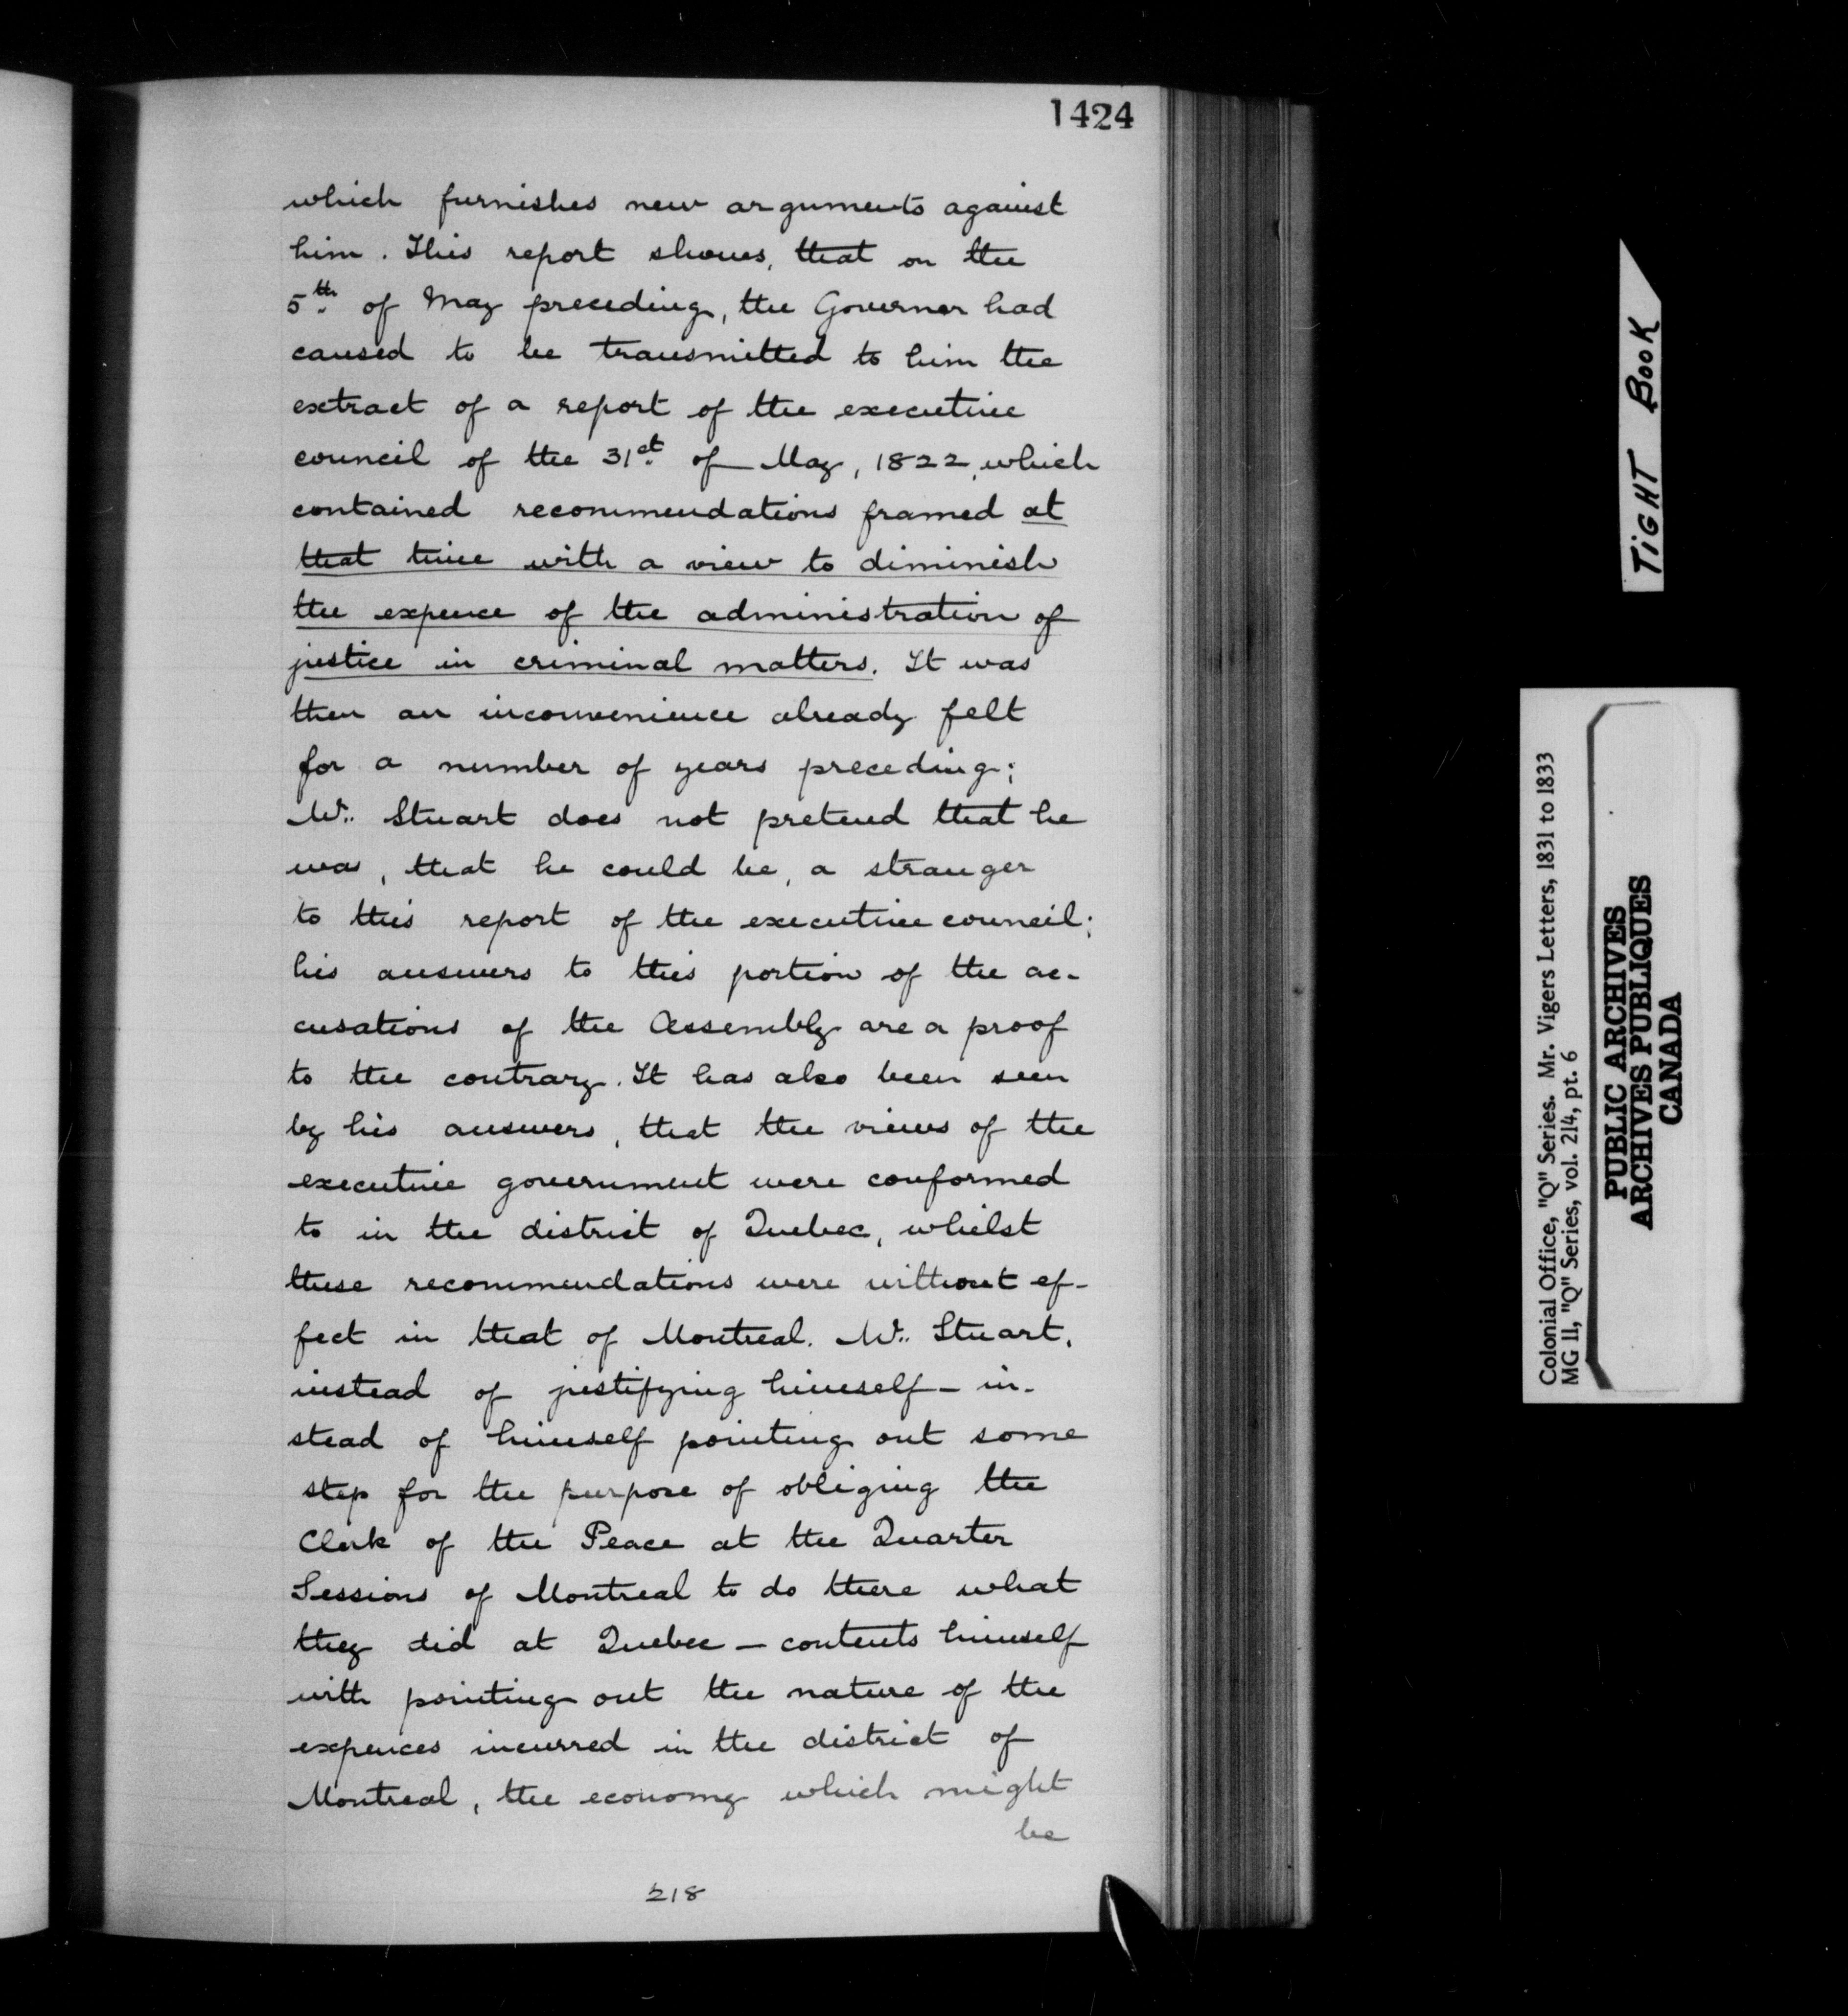 1424
which furnishes new arguments against
him. This report shows, that on the
5th of May preceding, the Governor had
caused to be transmitted to him the
extract of a report of the executive
council of the 31st of May, 1822, which
contained recommendations framed at
that time with a view to diminish
the expence of the administration of
justice in criminal matters. It was
then an inconvenience already felt
for a number of years preceding;
Mr. Stuart does not pretend that he
was, that he could be, a stranger
to this report of the executive council;
his answers to this portion of the ac-
cusations of the Assembly are a proof
to the contrary. It has also been seen
by his answers, that the views of the
executive government were conformed
to in the district of Quebec, whilst
these recommendations were without ef-
fect in that of Montreal. Mr. Stuart,
instead of justifying himself - in-
stead of himself pointing out some
step for the purpose of obliging the
Clerk of the Peace at the Quarter
Sessions of Montreal to do there what
they did at Quebec - contents himself
with pointing out the nature of the
expences incurred in the district of
Montreal, the economy which might
be
218
TIGHT BOOK
Colonial Office, "Q" Series. Mr. Vigers Letters, 1831 to 1833
MG 11, "Q" Series, vol. 214, pt. 6
PUBLIC ARCHIVES
ARCHIVES PUBLIQUES
CANADA